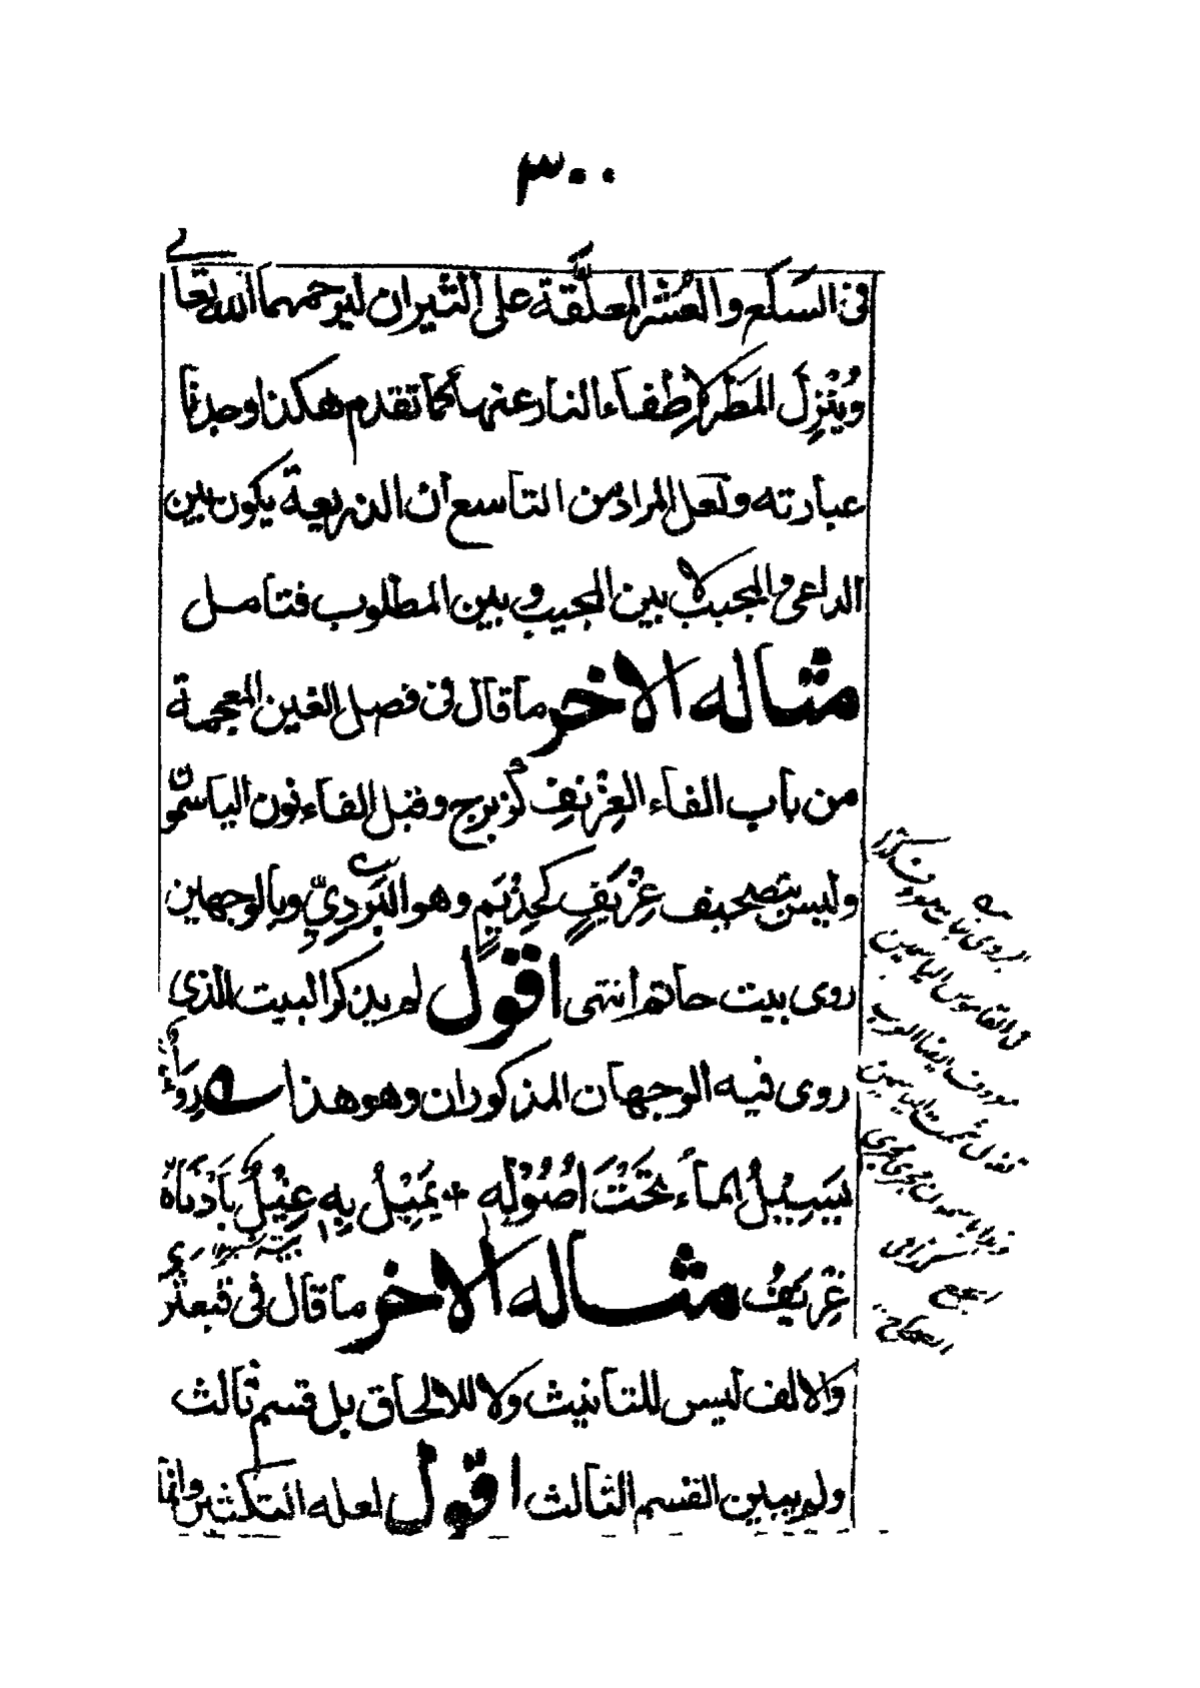 ٣٠٠
في السَّلَع والعُشَر المعلَّقة على الثيران ليرحمهما الله تعالى
ويُنْزِلَ المَطَر لإطفاء النار عنها كما تقدم هكذا وجدنا
عبارته ولعل المراد من التاسع ان الذريعة يكون بين
الداعي والمجيب لا بين المجيب وبين المطلوب فتامل
مثاله الآخر ما قال في فصل الغين المعجمة
من باب الفاء الغِرْنِف كزبرج وقبل الفاء نون الياسمون
وليس بتصحيف غِرْيَفٍ كحِذْيَمٍ وهو البَرْدِيّ وبالوجهين
روى بيت حاتم انتهى اقول لم يذكر البيت الذي
روى فيه الوجهان المذكوران وهو هذا رِوَاءٌ
يَسِيلُ الماءُ تَحْتَ اُصُوْلِهِ + يَمِيْلُ بِهِ غِيْلٌ بِأَدْنَاهُ
غِرْيَفُ مثاله الآخر ما قال في قبعثرى
والالف ليس للتانيث ولا للالحاق بل قسم ثالث
ولم يبين القسم الثالث اقول لعله التكثير وانما
في القاموس الياسمين
معروف ايضا العرب
تقول شممت الياسمين